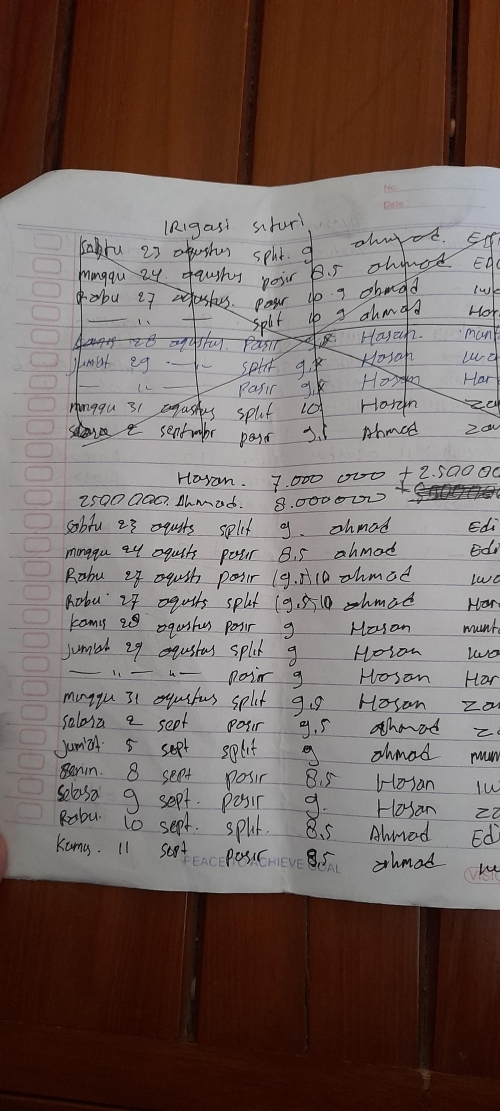 No.
Date:
IRigasi situri
Sabtu 23 agustus split. 9 ahmad. Edi
minggu 24 agustus pasir 8.5 ahmad Edi
Rabu 27 agustus. pasir 10 9 ahmad
— " — split 10 9 ahmad Har
Kamis 28 agustus. Pasir Hasan. munt
jumat 29 — " — split Hasan
— " — pasir Hasan Har
minggu 31 agustus split 10 Hasan za
selasa 2 septmbr pasir 9.5 Ahmad za
Hasan. 7.000 000 + 2.500 00
2500 000. Ahmad. 8.000000 +
sabtu 23 agusts split 9. ahmad Edi
minggu 24 agusts pasir 8.5 ahmad Edi
Rabu 27 agusts pasir (9.5) 10 ahmad
Rabu 27 agusts split (9.5) 10 ahmad Har
kamis 28 agustus pasir 9 Hasan munt
jumlat 29 agustus split 9 Hasan
— " — " — pasir 9 Hasan Har
minggu 31 agustus split 9.5 Hasan za
salasa 2 sept pasir 9.5 ahmad z
jumlat. 5 sept split 9 ahmad mun
senin. 8 sept pasir 8.5 Hasan
selasa 9 sept. pasir 9. Hasan za
Rabu. 10 sept. split. 8.5 Ahmad Edi
kamis. 11 sept pasir 8.5 ahmad
PEACE TO ACHIEVE GOAL
VISI